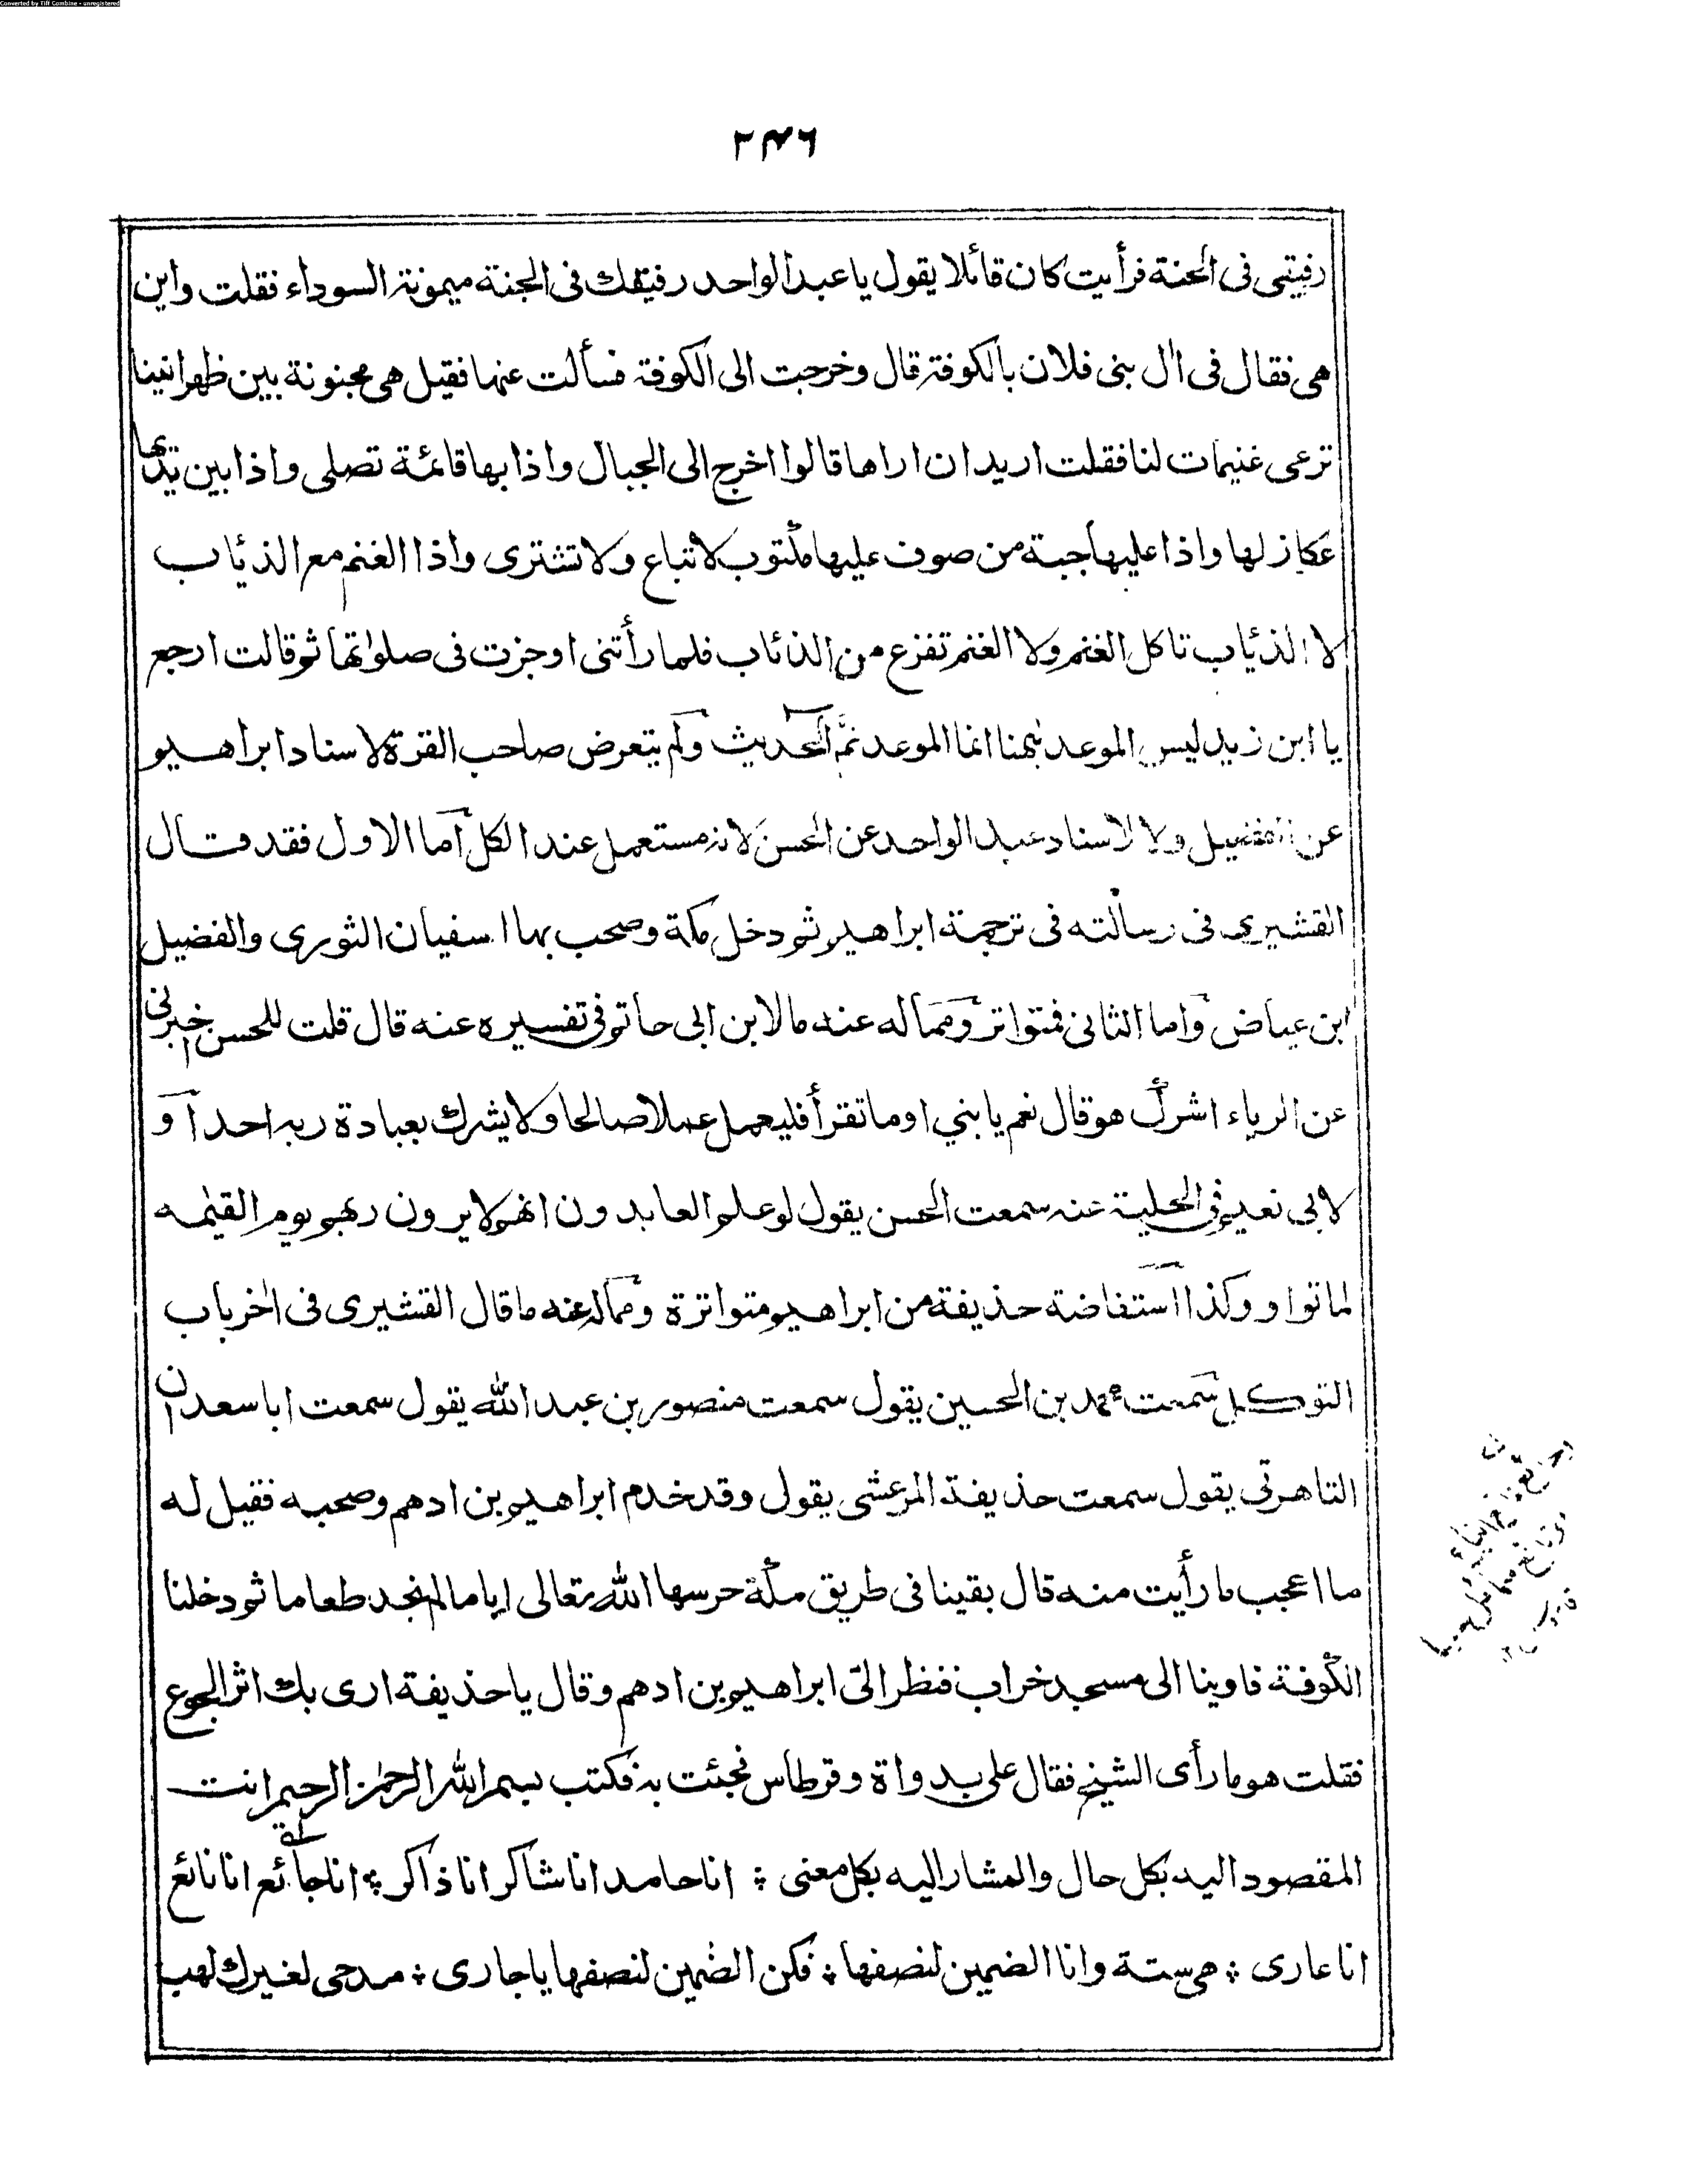 Converted by Tiff Combine - unregistered
٢٤٦
رفيقى فى الجنة فرأيت كان قائلا يقول يا عبد الواحد رفيقك فى الجنة ميمونة السوداء فقلت واين
هى فقال فى اٰل بنى فلان بالكوفة قال وخرجت الى الكوفة فسألت عنها فقيل هى مجنونة بين ظهرانينا
ترعى غنيمات لنا فقلت اريد ان اراها قالوا اخرج الى الجبال واذا بها قائمة تصلى واذا بين يديها
عكاز لها واذا عليها جبة من صوف عليها مكتوب لا تباع ولا تشترى واذا الغنم مع الذئاب
لا الذئاب تاكل الغنم ولا الغنم تفزع من الذئاب فلما رأتنى اوجزت فى صلوٰتها ثم قالت ارجع
يا ابن زيد ليس الموعد ههنا انما الموعد ثمّ الحديث ولم يتعرض صاحب القرة لاسناد ابراهيم
عن الفضيل ولا لاسناد عبد الواحد عن الحسن لانه مستعمل عند الكل اما الاول فقد قال
القشيرى فى رسالته فى ترجمة ابراهيم ثم دخل مكة وصحب بها سفيان الثورى والفضيل
ابن عياض واما الثانى فمتواتر ومما له عنه ما لابن ابى حاتم فى تفسيره عنه قال قلت للحسن اخبرنى
عن الرياء اشرك هو قال نعم يا بني اوما تقرأ فليعمل عملا صالحا ولا يشرك بعبادة ربه احدا و
لابى نعيم فى الحلية عنه سمعت الحسن يقول لو علم العابدون انهم لا يرون ربهم يوم القيٰمه
لماتوا و وكذا استفاضة حذيفة من ابراهيم متواترة ومما له عنه ما قال القشيرى فى اٰخر باب
التوكل سمعت محمد بن الحسين يقول سمعت منصور بن عبد الله يقول سمعت ابا سعدان
التاهرتى يقول سمعت حذيفة المرعشى يقول وقد خدم ابراهيم بن ادهم وصحبه فقيل له
ما اعجب ما رأيت منه قال بقينا فى طريق مكة حرسها الله تعالى اياما لم نجد طعاما ثم دخلنا
الكوفة فاوينا الى مسجد خراب فنظر الىّ ابراهيم بن ادهم وقال يا حذيفة ارى بك اثر الجوع
فقلت هو ما رأى الشيخ فقال على بدواة وقرطاس فجئت به فكتب بسم الله الرحمٰن الرحيم انت
المقصود اليه بكل حال والمشار اليه بكل معنى ؛ انا حامد انا شاكر انا ذاكر ؛ انا جائع انا نائع
انا عارى ؛ هى ستة وانا الضمين لنصفها ؛ فكن الضمين لنصفها يا جارى ؛ مدحى لغيرك لهب